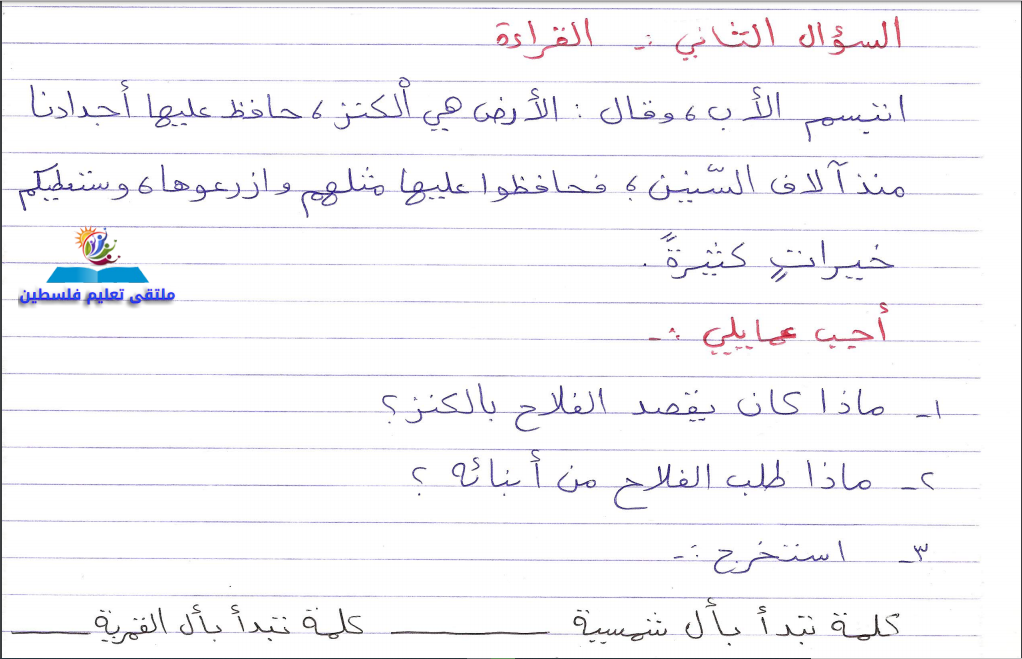 السؤال الثاني :- القراءة
ابتسم الأب ، وقال : الأرض هي الْكنز ، حافظ عليها أجدادنا
منذ آلاف السّنين ، فحافظوا عليها مثلهم وازرعوها ، وستعطيكم
خيراتٍ كثيرةً .
ملتقى تعليم فلسطين
أجيب عما يلي :-
١- ماذا كان يقصد الفلاح بالكنز ؟
٢- ماذا طلب الفلاح من أبنائه ؟
٣- استخرج :-
كلمة تبدأ بأل شمسية ________ كلمة تبدأ بأل القمرية ________